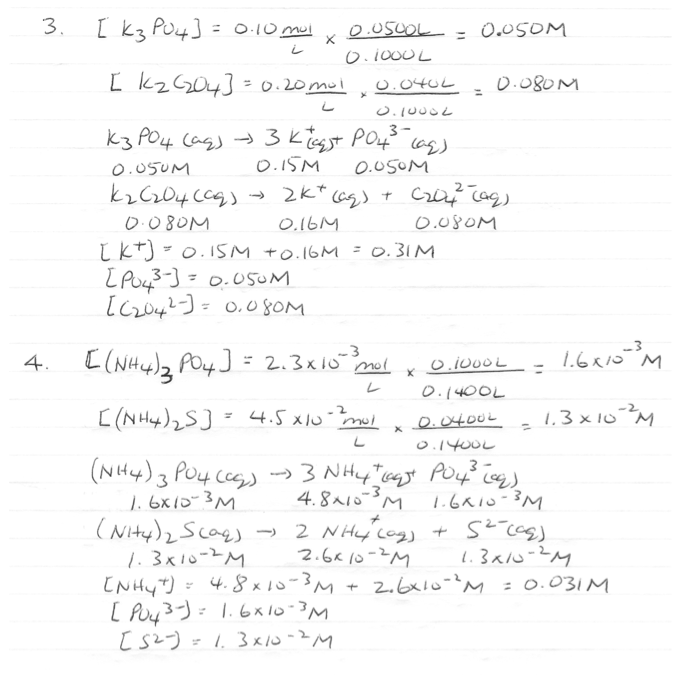 3. [K3PO4] = 0.10 mol/L × 0.0500L/0.1000L = 0.050M
[K2C2O4] = 0.20 mol/L × 0.040L/0.1000L = 0.080M
K3PO4 (aq) → 3 K⁺(aq) + PO4³⁻(aq)
0.050M 0.15M 0.050M
K2C2O4 (aq) → 2K⁺ (aq) + C2O4²⁻(aq)
0.080M 0.16M 0.080M
[K⁺] = 0.15M + 0.16M = 0.31M
[PO4³⁻] = 0.050M
[C2O4²⁻] = 0.080M
4. [(NH4)3PO4] = 2.3×10⁻³ mol/L × 0.1000L/0.1400L = 1.6×10⁻³M
[(NH4)2S] = 4.5×10⁻² mol/L × 0.0400L/0.1400L = 1.3×10⁻²M
(NH4)3PO4 (aq) → 3 NH4⁺(aq) + PO4³⁻(aq)
1.6×10⁻³M 4.8×10⁻³M 1.6×10⁻³M
(NH4)2S(aq) → 2 NH4⁺(aq) + S²⁻(aq)
1.3×10⁻²M 2.6×10⁻²M 1.3×10⁻²M
[NH4⁺] = 4.8×10⁻³M + 2.6×10⁻²M = 0.031M
[PO4³⁻] = 1.6×10⁻³M
[S²⁻] = 1.3×10⁻²M